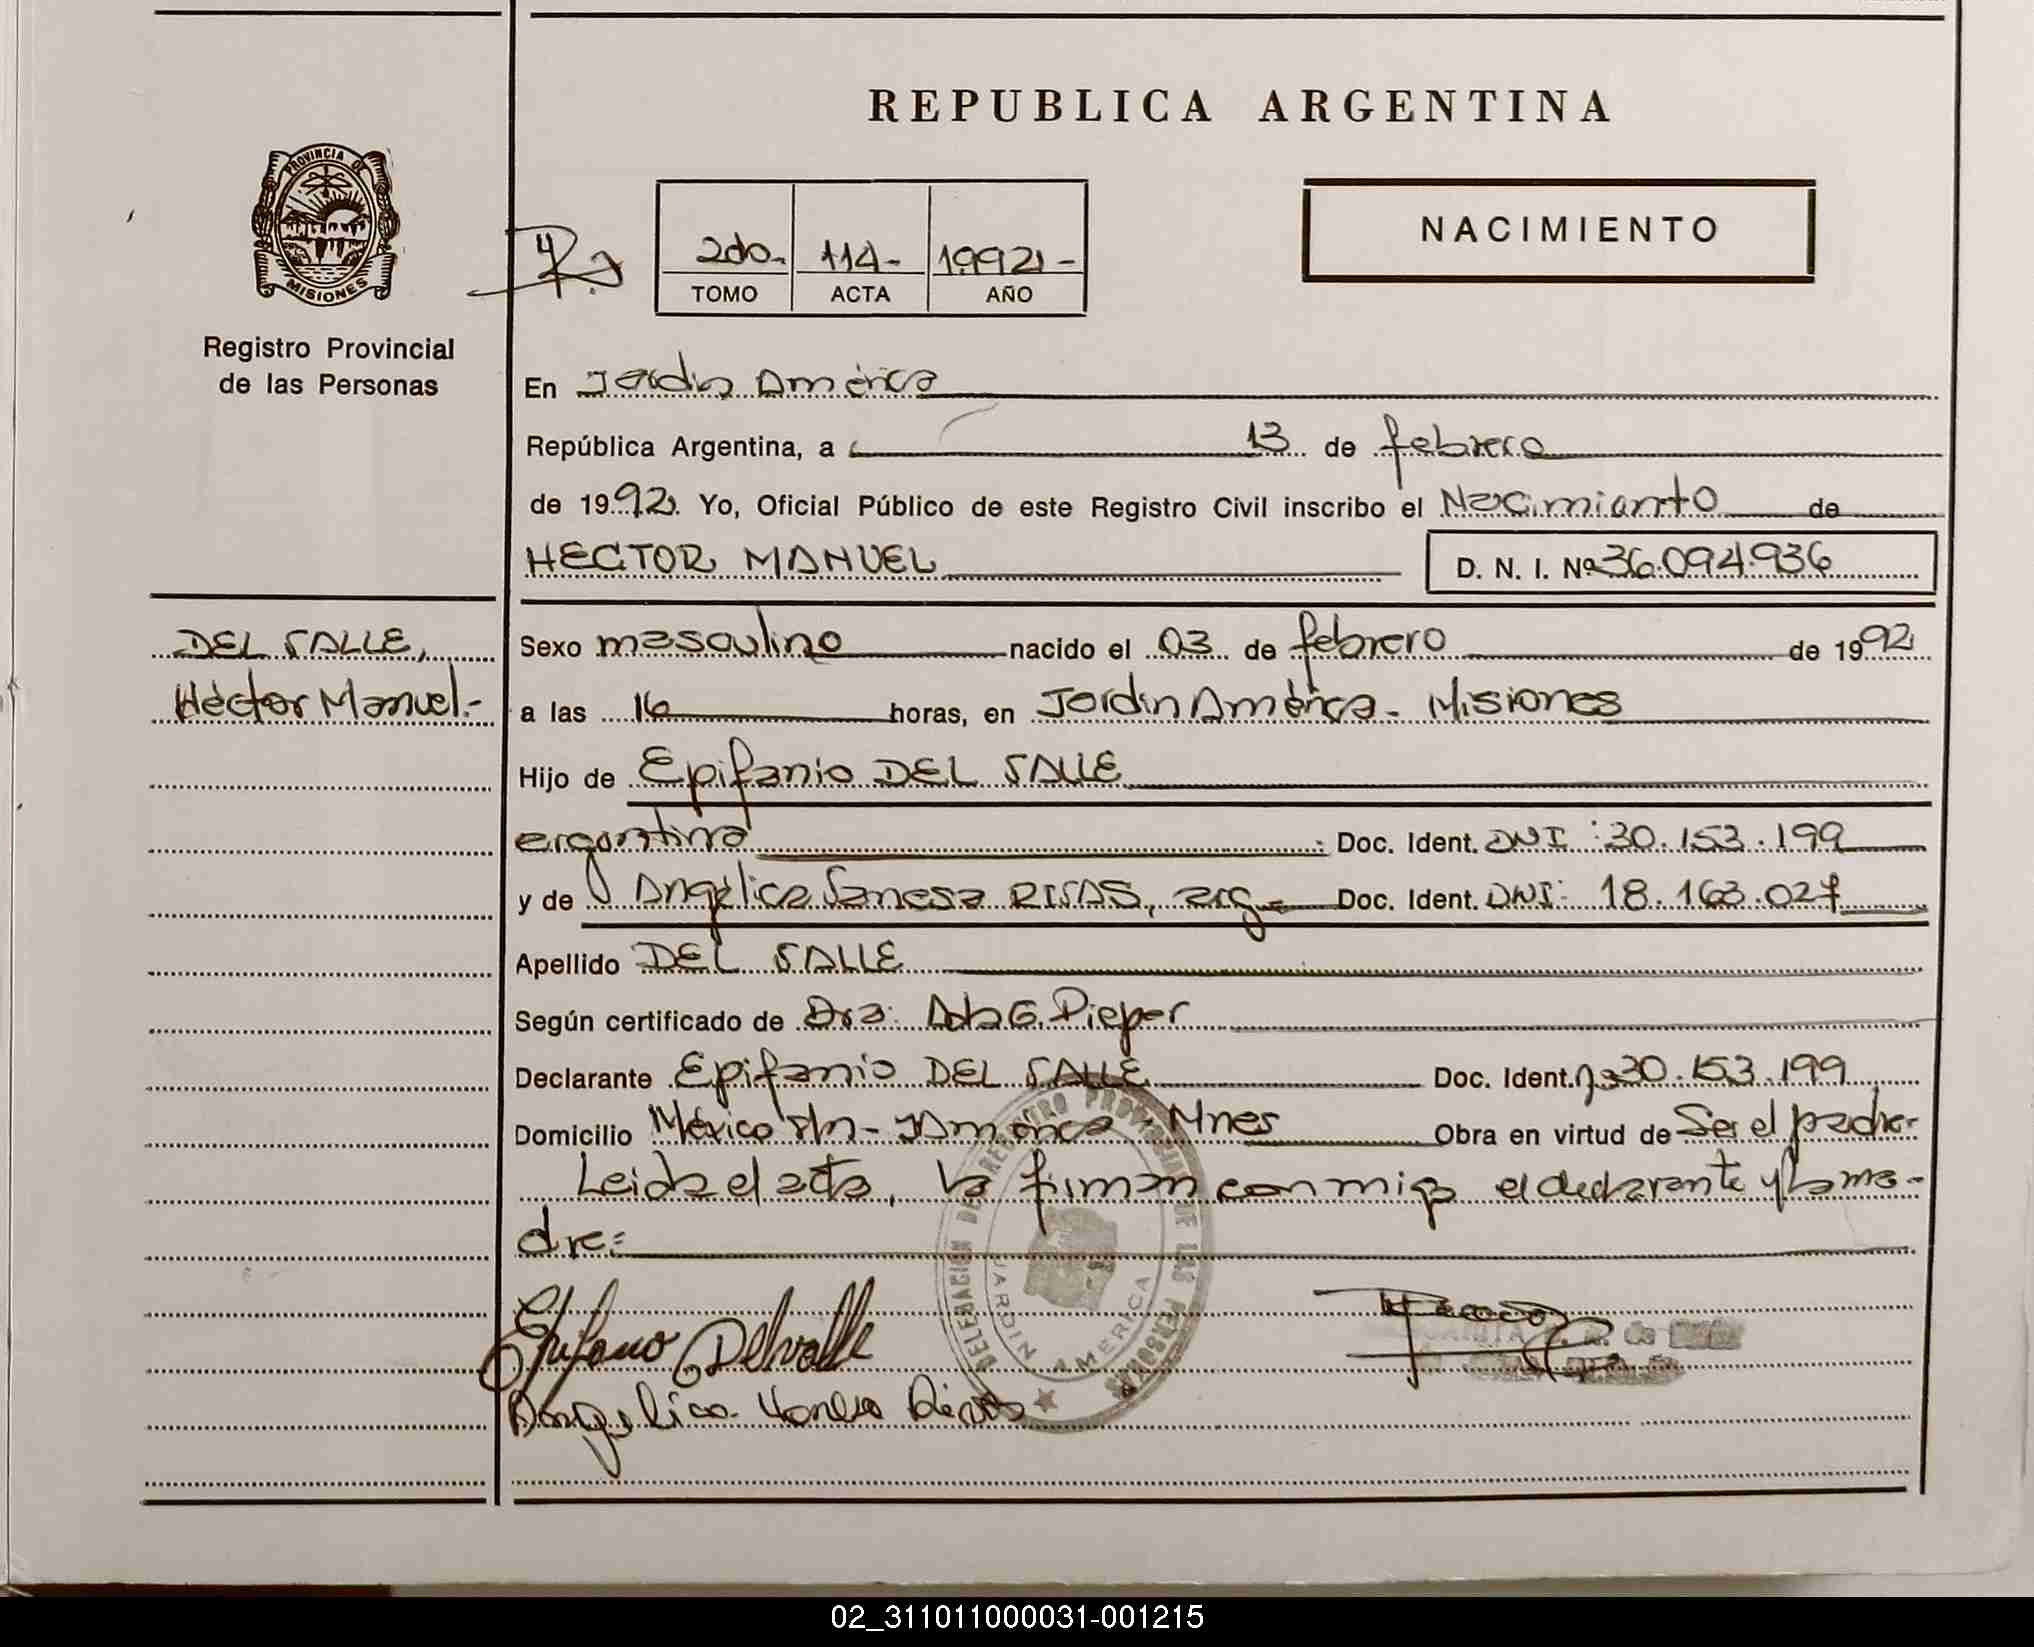 REPUBLICA ARGENTINA
PROVINCIA DE
MISIONES
Registro Provincial
de las Personas
2do.- 114- 1992-
TOMO ACTA AÑO
NACIMIENTO
En Jardin América
República Argentina, a 13 de febrero
de 1992. Yo, Oficial Público de este Registro Civil inscribo el Nacimiento de
HECTOR MANUEL D. N. I. Nº 36.094.936
DEL VALLE,
Héctor Manuel.-
Sexo masculino nacido el 03 de febrero de 1992
a las 16 horas, en Jardin América- Misiones
Hijo de Epifanio DEL VALLE
argentina Doc. Ident. DNI: 30.153.199
y de Angélica Vanesa RIVAS, arg- Doc. Ident. DNI: 18.163.027
Apellido DEL VALLE
Según certificado de Dra: Ada G. Pieper
Declarante Epifanio DEL VALLE Doc. Ident. 30.153.199
Domicilio México s/n- JAmérica- Mnes Obra en virtud de Ser el padre-
Leida el acta, la firman conmigo el declarante y la ma-
dre:
DELEGACION DEL REGISTRO PROVINCIAL DE LAS PERSONAS
JARDIN AMERICA
Epifanio Delvalle
Angelica Vanesa Rivas
02_311011000031-001215